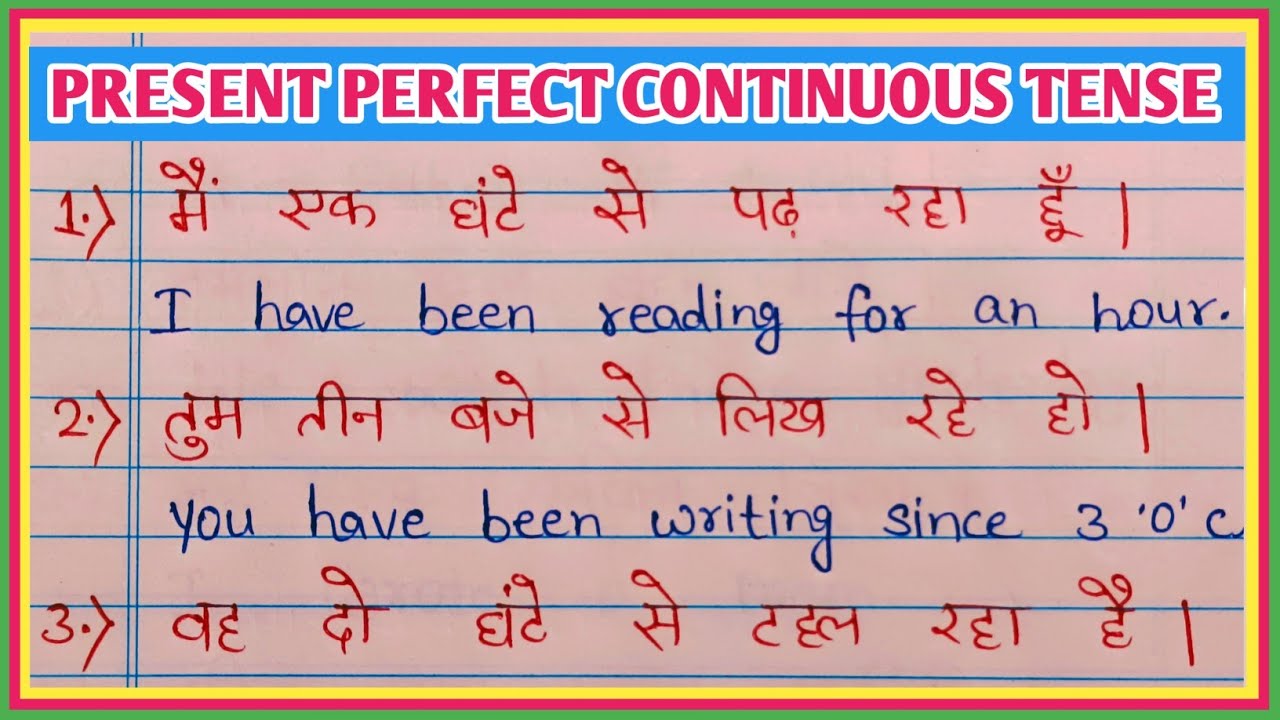 PRESENT PERFECT CONTINUOUS TENSE
1.) मैं एक घंटे से पढ़ रहा हूँ।
I have been reading for an hour.
2.) तुम तीन बजे से लिख रहे हो।
you have been writing since 3 'O' c
3.) वह दो घंटे से टहल रहा है।